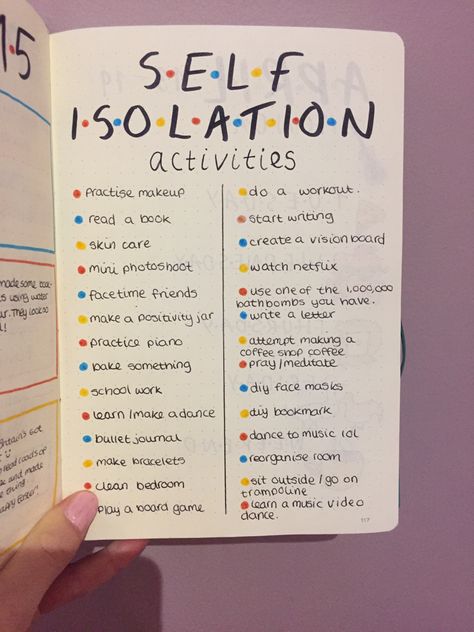 1.5
made some
s using water
ur. They look so
d!
Britain's Got
read loads of
k and made
e thing
SELF
ISOLATION
activities
Practise makeup
read a book
skin care
mini photoshoot
facetime friends
make a positivity jar
practice piano
bake something
school work
learn/make a dance
bullet journal
make bracelets
clean bedroom
play a board game
do a workout.
start writing
create a vision board
watch netflix
use one of the 1,000,000
bathbombs you have.
write a letter
attempt making a
coffee shop coffee
pray/meditate
diy face masks
diy bookmark
dance to music lol
reorganise room
sit outside/go on
trampoline
learn a music video
dance.
117